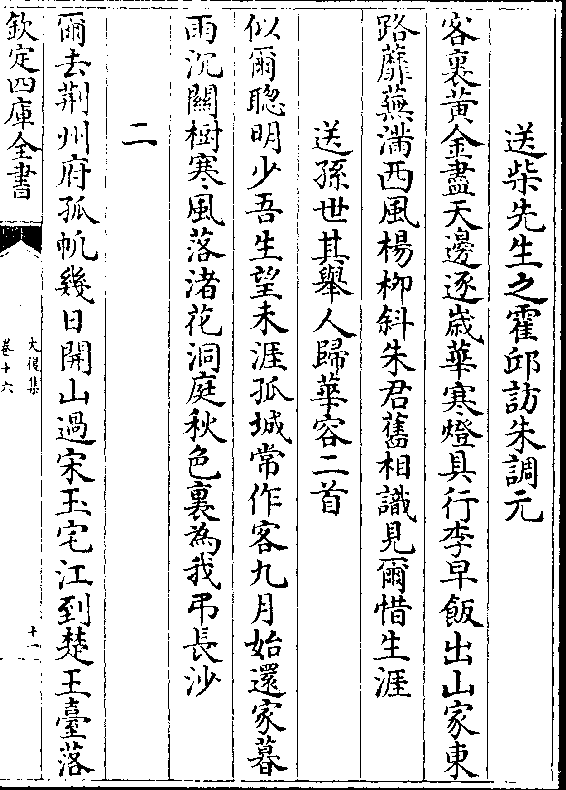 送柴先生之霍邱訪朱調元
客裏黃金盡天邊逐歲華寒燈具行李早飯出山家東
路蘼蕪滿西風楊柳斜朱君舊相識見爾惜生涯
送孫世其舉人歸華容二首
似爾聰明少吾生望未涯孤城常作客九月始還家暮
雨沉關樹寒風落渚花洞庭秋色裏為我弔長沙
二
爾去荊州府孤帆幾日開山過宋玉宅江到楚王臺落
欽定四庫全書
大復集
卷十六
十一